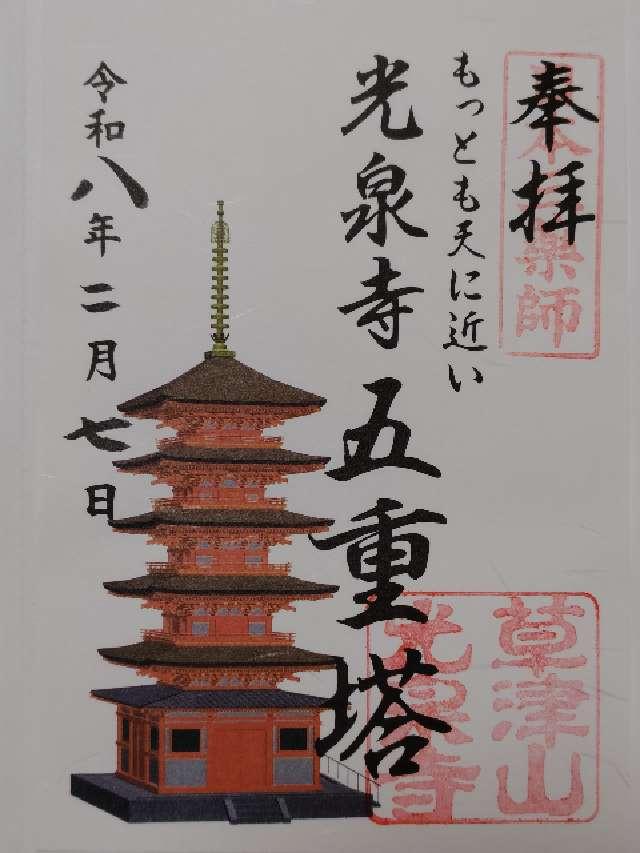 奉拝
もっとも天に近い
光泉寺五重塔
令和八年二月七日
草津山
光泉寺